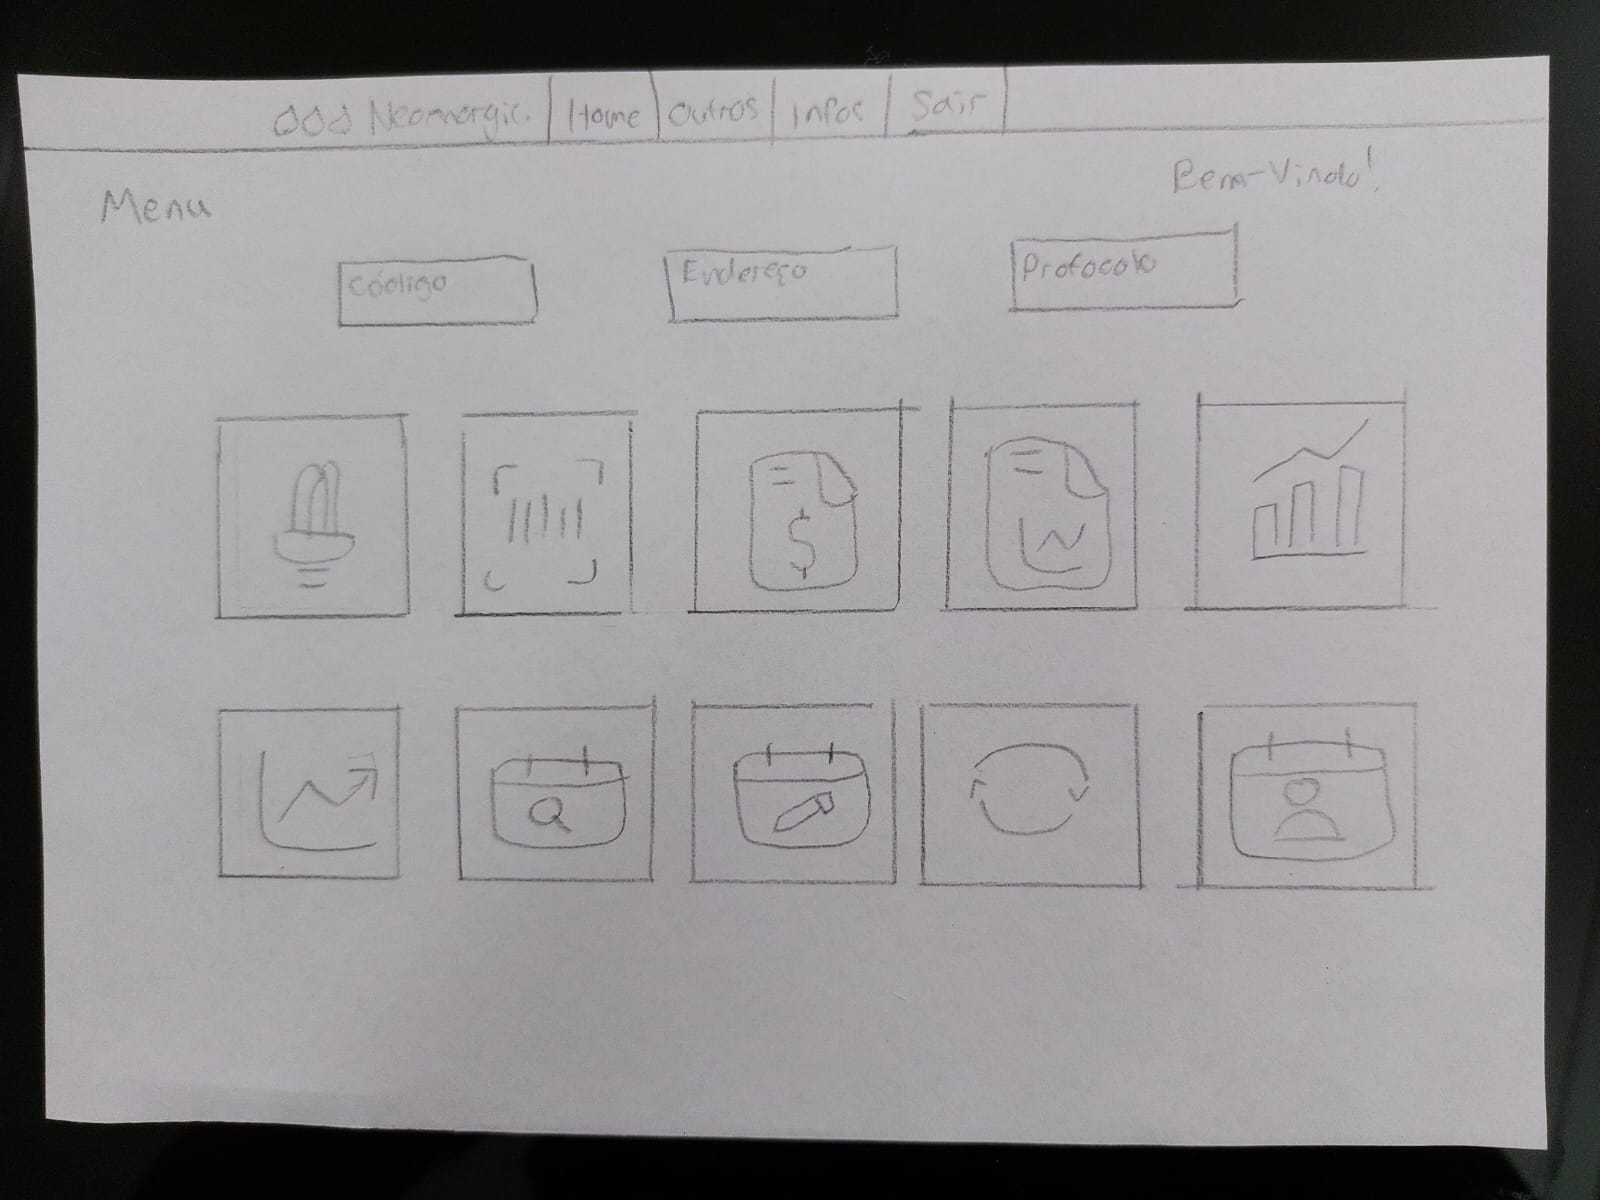 Neoenergic. Home Outros Infos Sair
Bem-Vindo!
Menu
Código Endereço Protocolo
$